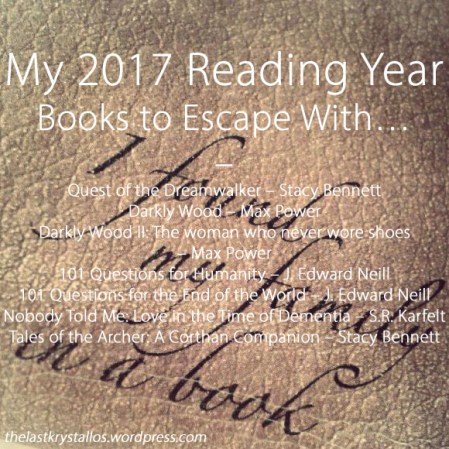 My 2017 Reading Year
Books to Escape With…
–
Quest of the Dreamwalker – Stacy Bennett
Darkly Wood – Max Power
Darkly Wood II: The woman who never wore shoes
– Max Power
101 Questions for Humanity – J. Edward Neill
101 Questions for the End of the World – J. Edward Neill
Nobody Told Me: Love in the Time of Dementia – S.R. Karfelt
Tales of the Archer: A Corthan Companion – Stacy Bennett
I found
my
in a book
thelastkrystallos.wordpress.com